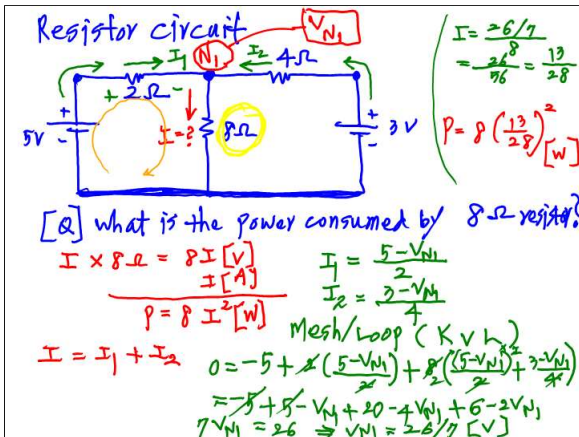 Resistor circuit
I₁ N₁ I₂ V_N₁
4Ω
+ 2Ω -
5V + -
I=?
8Ω
+ - 3V
I = 26/7 / 8
= 26/56 = 13/28
P = 8 (13/28)² [W]
[Q] what is the power consumed by 8Ω resister?
I × 8Ω = 8I [V]
I [A]
P = 8 I² [W]
I = I₁ + I₂
I₁ = (5-V_N₁)/2
I₂ = (3-V_N₁)/4
Mesh/Loop (KVL)
0 = -5 + 2 ((5-V_N₁)/2) + 8 ((5-V_N₁)/2 + (3-V_N₁)/4)
= -5 + 5 - V_N₁ + 20 - 4V_N₁ + 6 - 2V_N₁
7V_N₁ = 26 ⇒ V_N₁ = 26/7 [V]